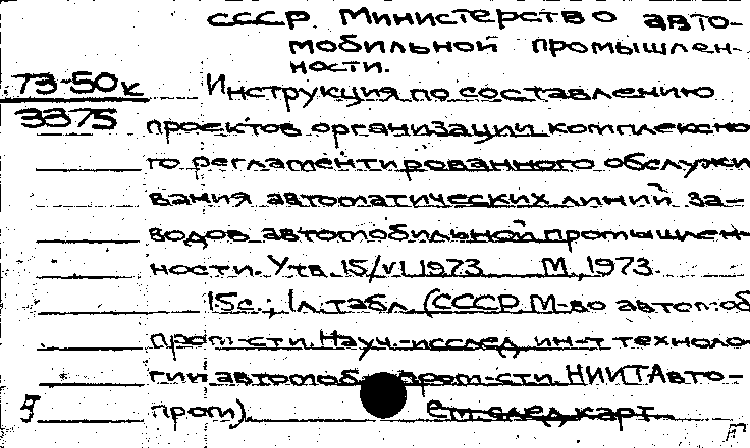 СССР. Министерство авто-
мобильной промышлен-
ности.
73-50к
3375
Инструкция по составлению
проектов организации комплексно
го регламентированного обслужи
вания автоматических линий за-
водов автомобильной промышлен-
ности. Утв. 15/VI 1973 М., 1973.
15с.; 1л. табл. (СССР М-во автомоб
пром-сти. Науч.-исслед. ин-т техноло
гии автомоб. пром-сти. НИИТАвто-
пром)
См. след. карт.